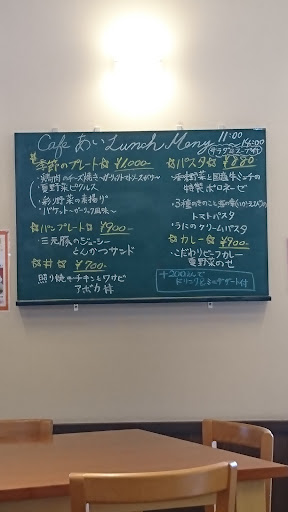 Cafe あい Lunch Meny 11:00
14:00
☆季節のプレート☆ ¥1,000-
・鶏肉のチーズ焼き
・夏野菜ピクルス
・彩り野菜の素揚げ
・バケット〜ガーリック風味〜
☆パンプレート☆ ¥900-
・三元豚のジューシー
とんかつサンド
☆丼☆ ¥700-
照り焼きチキンとワサビ
アボカ丼
☆パスタ☆ ¥880
・香味野菜と国産牛ミンチの
特製ボロネーゼ
・3種のきのこと
トマトパスタ
・うにのクリームパスタ
☆カレー☆ ¥900-
・こだわりビーフカレー
夏野菜のせ
+200えんで
ドリンク&デザート付